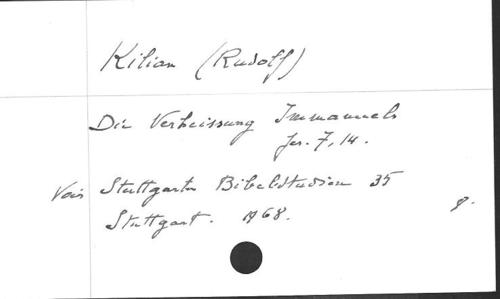 Kilian (Rudolf)
Die Verheissung Immanuels
Jes. 7,14.
Voir Stuttgarter Bibelstudien 35
Stuttgart. 1968.
8.